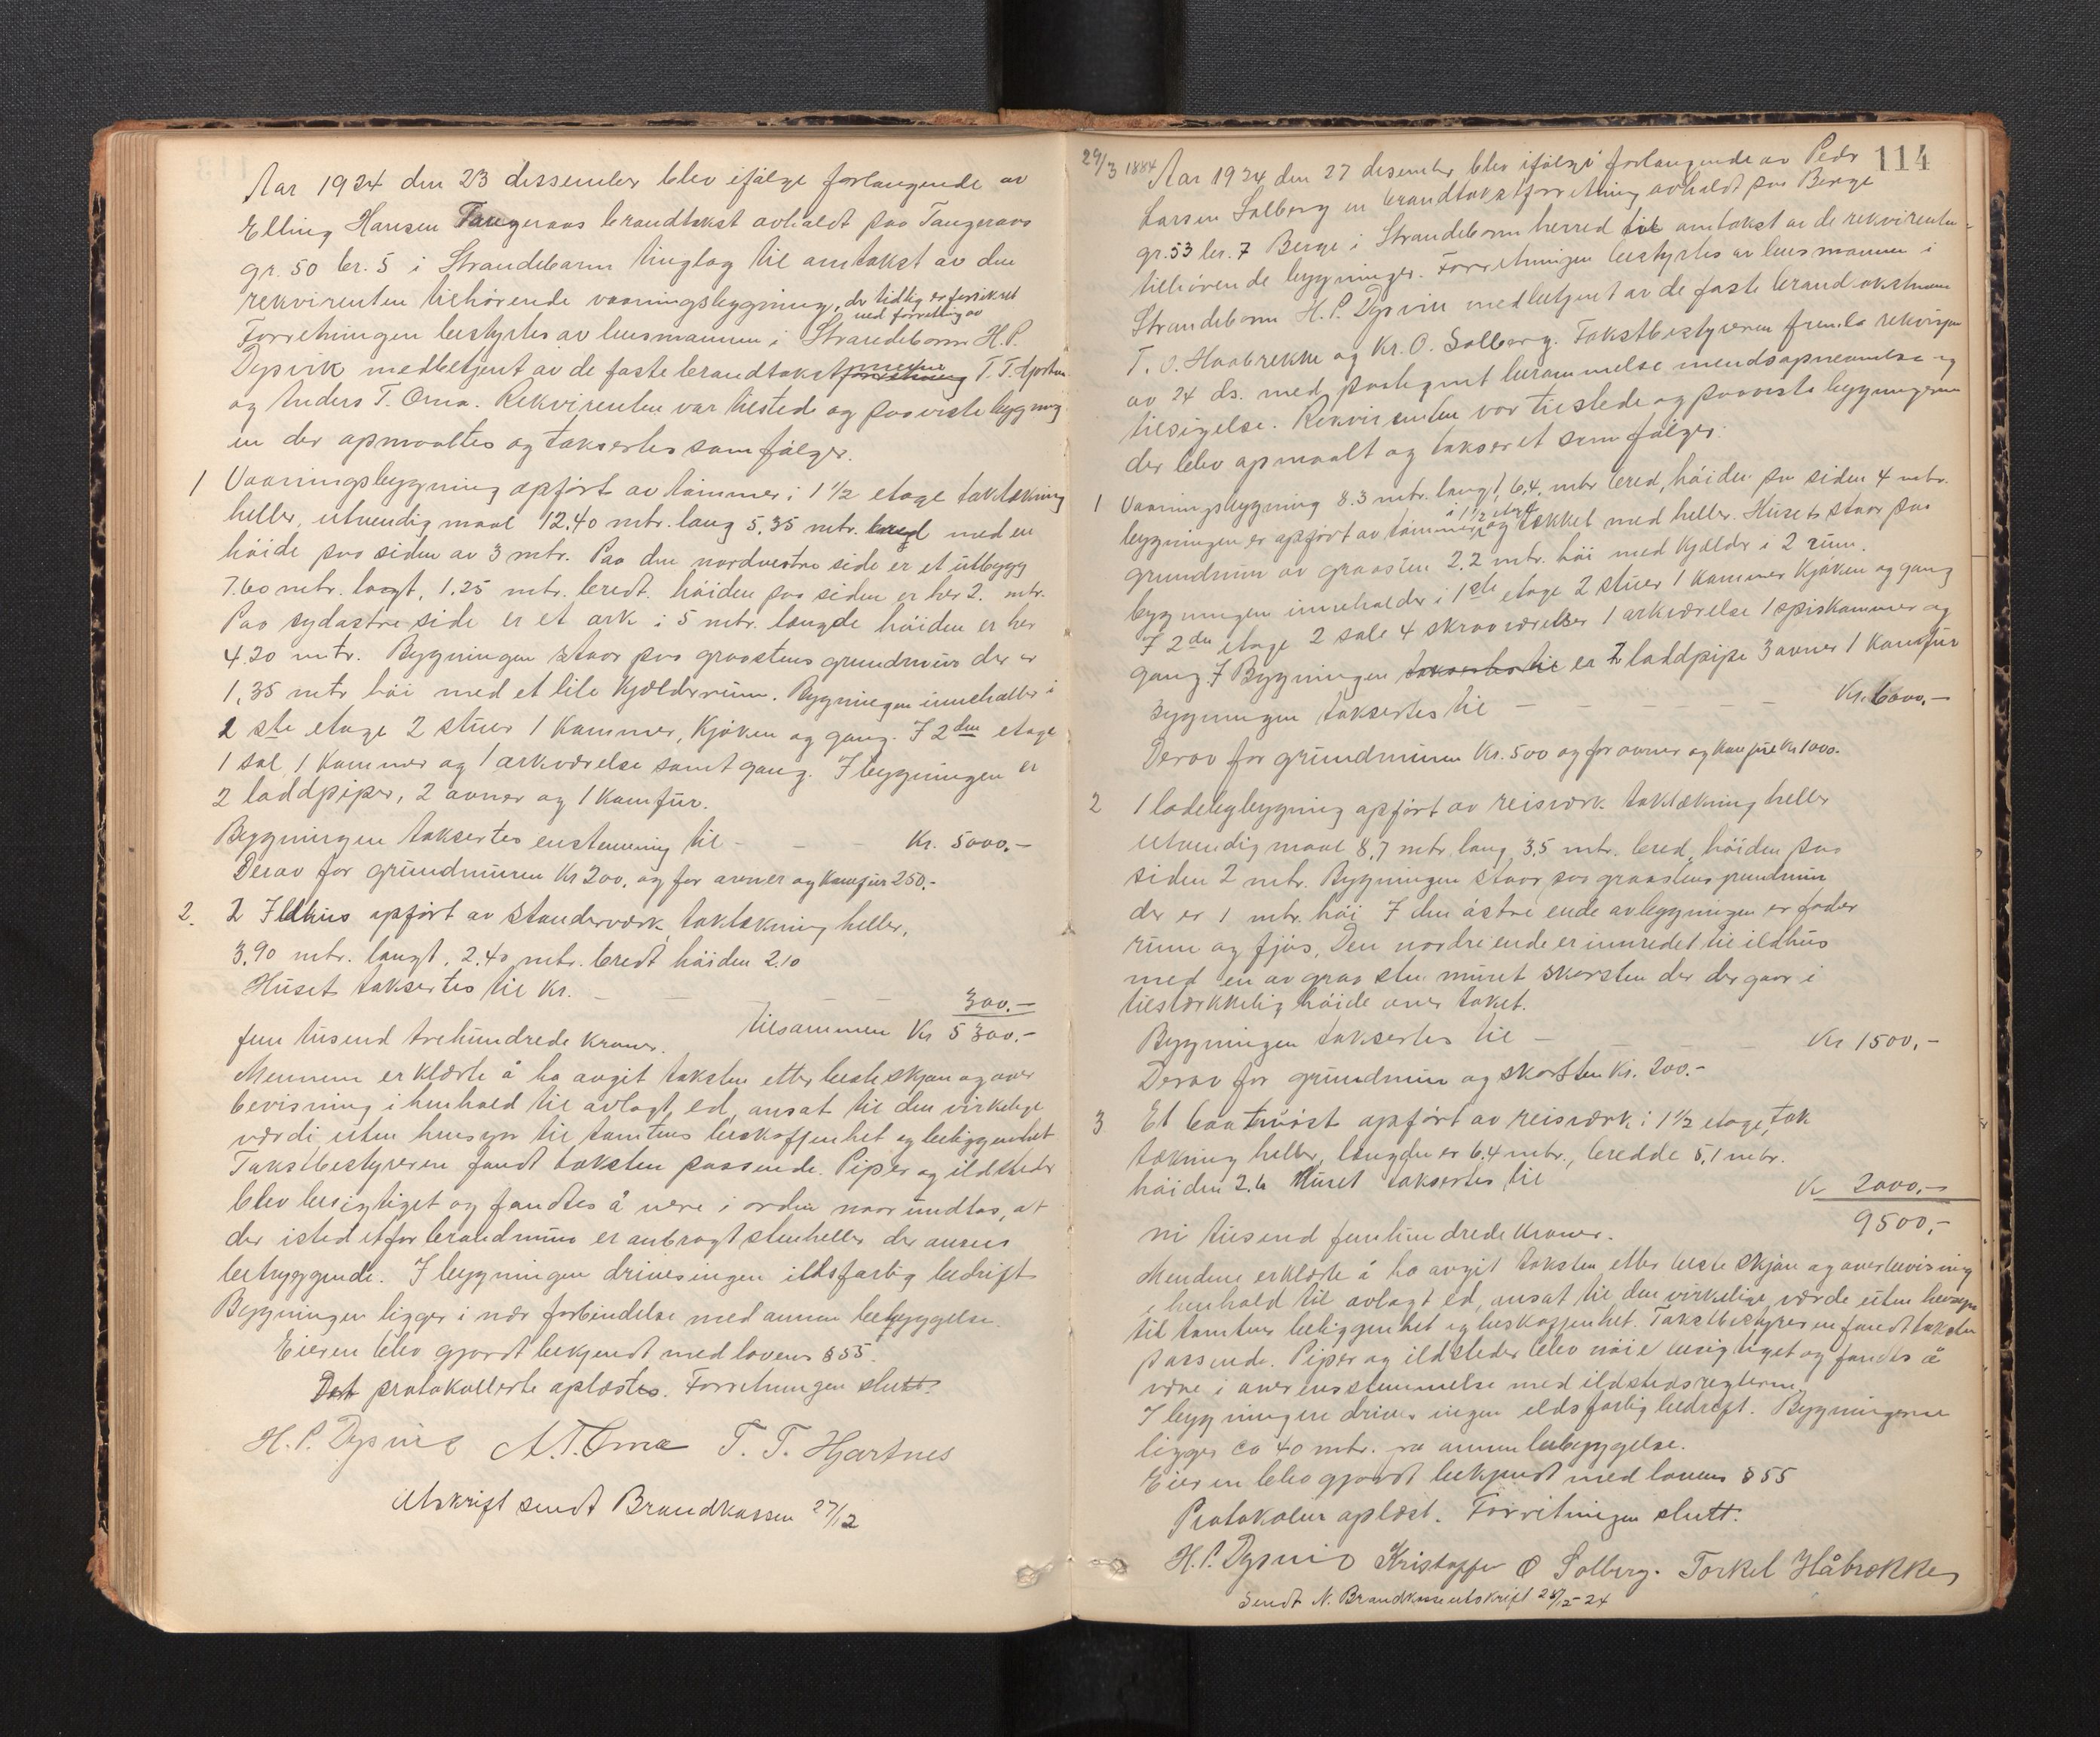 Aar 1924 den 23 dessember blev ifølge forlangende av
Elling Hansen Tangeraas brandtakst avholdt paa Tangeraas
gr. 50 br. 5 i Strandebarm tinglag til omtakst av den
rekvirenten tilhørende vaaningsbygning, der tidlig er forsikret
ved forretning av
Forretningen bestyrtes av lensmannen i Strandebarm H.P.
Dysvik medbetjent av de faste brandtakstmænd forretning T. T. Hjartnes
og Anders T. Oma. Rekvirenten var tilstede og paaviste bygning
en der opmaaltes og taksertes som følger.
1 Vaaningsbygning opført av tømmer i 1 1/2 etage taktækning
heller, utvendig maal 12.40 mtr. lang 5.35 mtr. bred med en
høide paa siden av 3 mtr. Paa den nordvestre side er et utbygg
7.60 mtr. langt, 1.25 mtr. bredt. høiden paa siden er her 2. mtr.
Paa sydøstre side er et ark i 5 mtr. længde høiden er her
4.20 mtr. Bygningen staar paa graastens grundmur der er
1,35 mtr høi med et lite Kjælderrum. Bygningen inneholder i
1ste etage 2 stuer 1 Kammer, Kjøken og gang. I 2den etage
1 sal 1 Kammer og 1 arkværelse samt gang. I bygningen er
2 laddpiper, 2 ovner og 1 Komfur.
Bygningen taksertes enstemmig til - - - Kr. 5000.-
Derav for grundmuren Kr 200, og for ovner og Komfur 250.-
2. 1 Ildhus opført av standerværk taktækning heller,
3.90 mtr. langt, 2.40 mtr. bredt høiden 2.10
Huset taksertes til Kr. - - - 300.-
fem tusend trehundrede kroner. tilsammen Kr 5300.-
Mennene erklærte å ha avgit taksten etter beste skjøn og over
bevisning i henhold til avlagt ed, ansat til den virkelige
værdi uten hensyn til tomtens beskaffenhet og beliggenhet
Takstbestyreren fandt taksten passende. Piper og ildsteder
blev besigtiget og fandtes å være i orden naar undtas, at
der istedetfor brandmur er anbragt stenheller der ansees
betryggende. I bygningen drives ingen ildsfarlig bedrift
Bygningen ligger i nær forbindelse med annen bebyggelse.
Eieren blev gjordt bekjendt med lovens § 55.
Det protokollerte oplæstes. Forretningen slutt.
H. P. Dysvik A. T. Oma T. T. Hjartnes
Utskrift sendt Brandkassen 27/12
29/3 1884
114
Aar 1924 den 27 desember blev ifølge forlangende av Peder
Larsen Solberg en brandtakstforretning avholdt paa Berge
gr. 53 br. 7 Berge i Strandebarm herred til omtakst av de rekvirenten
tilhørende bygninger. Forretningen bestyrtes av lensmannen i
Strandebarm H. P. Dysvik medbetjent av de faste brandtakstmænn
T. O. Haabrekke og Kr. O. Solberg. Takstbestyreren fremla rekvisjon
av 24 ds. med paategnet berammelse mendsopnevnelse og
tilsigelse. Rekvirenten var tilstede og paaviste bygningerne
der blev opmaalt og taksert som følger.
1 Vaaningsbygning 8.3 mtr. langt, 6.4. mtr bred, høiden paa siden 4 mtr.
i 1 1/2 etage
bygningen er opført av tømmer, og tækket med heller. Huset staar paa
grundmur av graasten 2.2 mtr. høi med Kjælder i 2 rum.
bygningen inneholder i 1ste etage 2 stuer 1 Kammer Kjøken og gang
I 2den etage 2 sale 4 skraaværelser 1 arkværelse 1 spiskammer og
gang. I Bygningen taksertes til er 2 laddpipe 3 ovner 1 Komfur
Bygningen taksertes til - - - - - Kr. 6000.-
Derav for grundmuren Kr. 500 og for ovner og Komfur Kr 1000.
2 1 ladebygbygning opført av reisværk taktækning heller
utvendig maal 8,7 mtr. lang 3,5 mtr. bred, høiden paa
siden 2 mtr. Bygningen staar paa graastens grundmur
der er 1 mtr. høi I den østre ende av bygningen er foder
rum og fjøs. Den nordre ende er innredet til ildhus
med en av graasten muret skorsten der der gaar i
tilstrækkelig høide over taket.
Bygningen taksertes til - - - Kr 1500.-
Derav for grundmur og skorsten Kr. 200.-
3 Et baatnøst opført av reisværk i 1 1/2 etage, tak
tækning heller, længden er 6.4 mtr., bredde 5,1 mtr.
høiden 2.6 Huset taksertes til Kr 2000.-
9500,-
ni tusend femhundrede kroner.
Mendene erklærte å ha avgit taksten etter beste skjøn og overbevisning
i henhold til avlagt ed, ansat til den virkelige værde uten hensyn
til tomtens beliggenhet og beskaffenhet. Takstbestyreren fandt taksten
passende. Piper og ildsteder blev nøie besigtiget og fandtes å
være i overensstemmelse med ildstedsreglerne.
I bygningen drives ingen ildsfarlig bedrift. Bygningerne
ligger ca 40 mtr. fra annen bebyggelse.
Eieren blev gjordt bekjendt med lovens § 55
Protokolen oplæst. Forretningen slutt.
H. P. Dysvik Kristoffer O Solberg. Torkel Håbrekke
Sendt N. Brandkasse utskrift 28/12-24